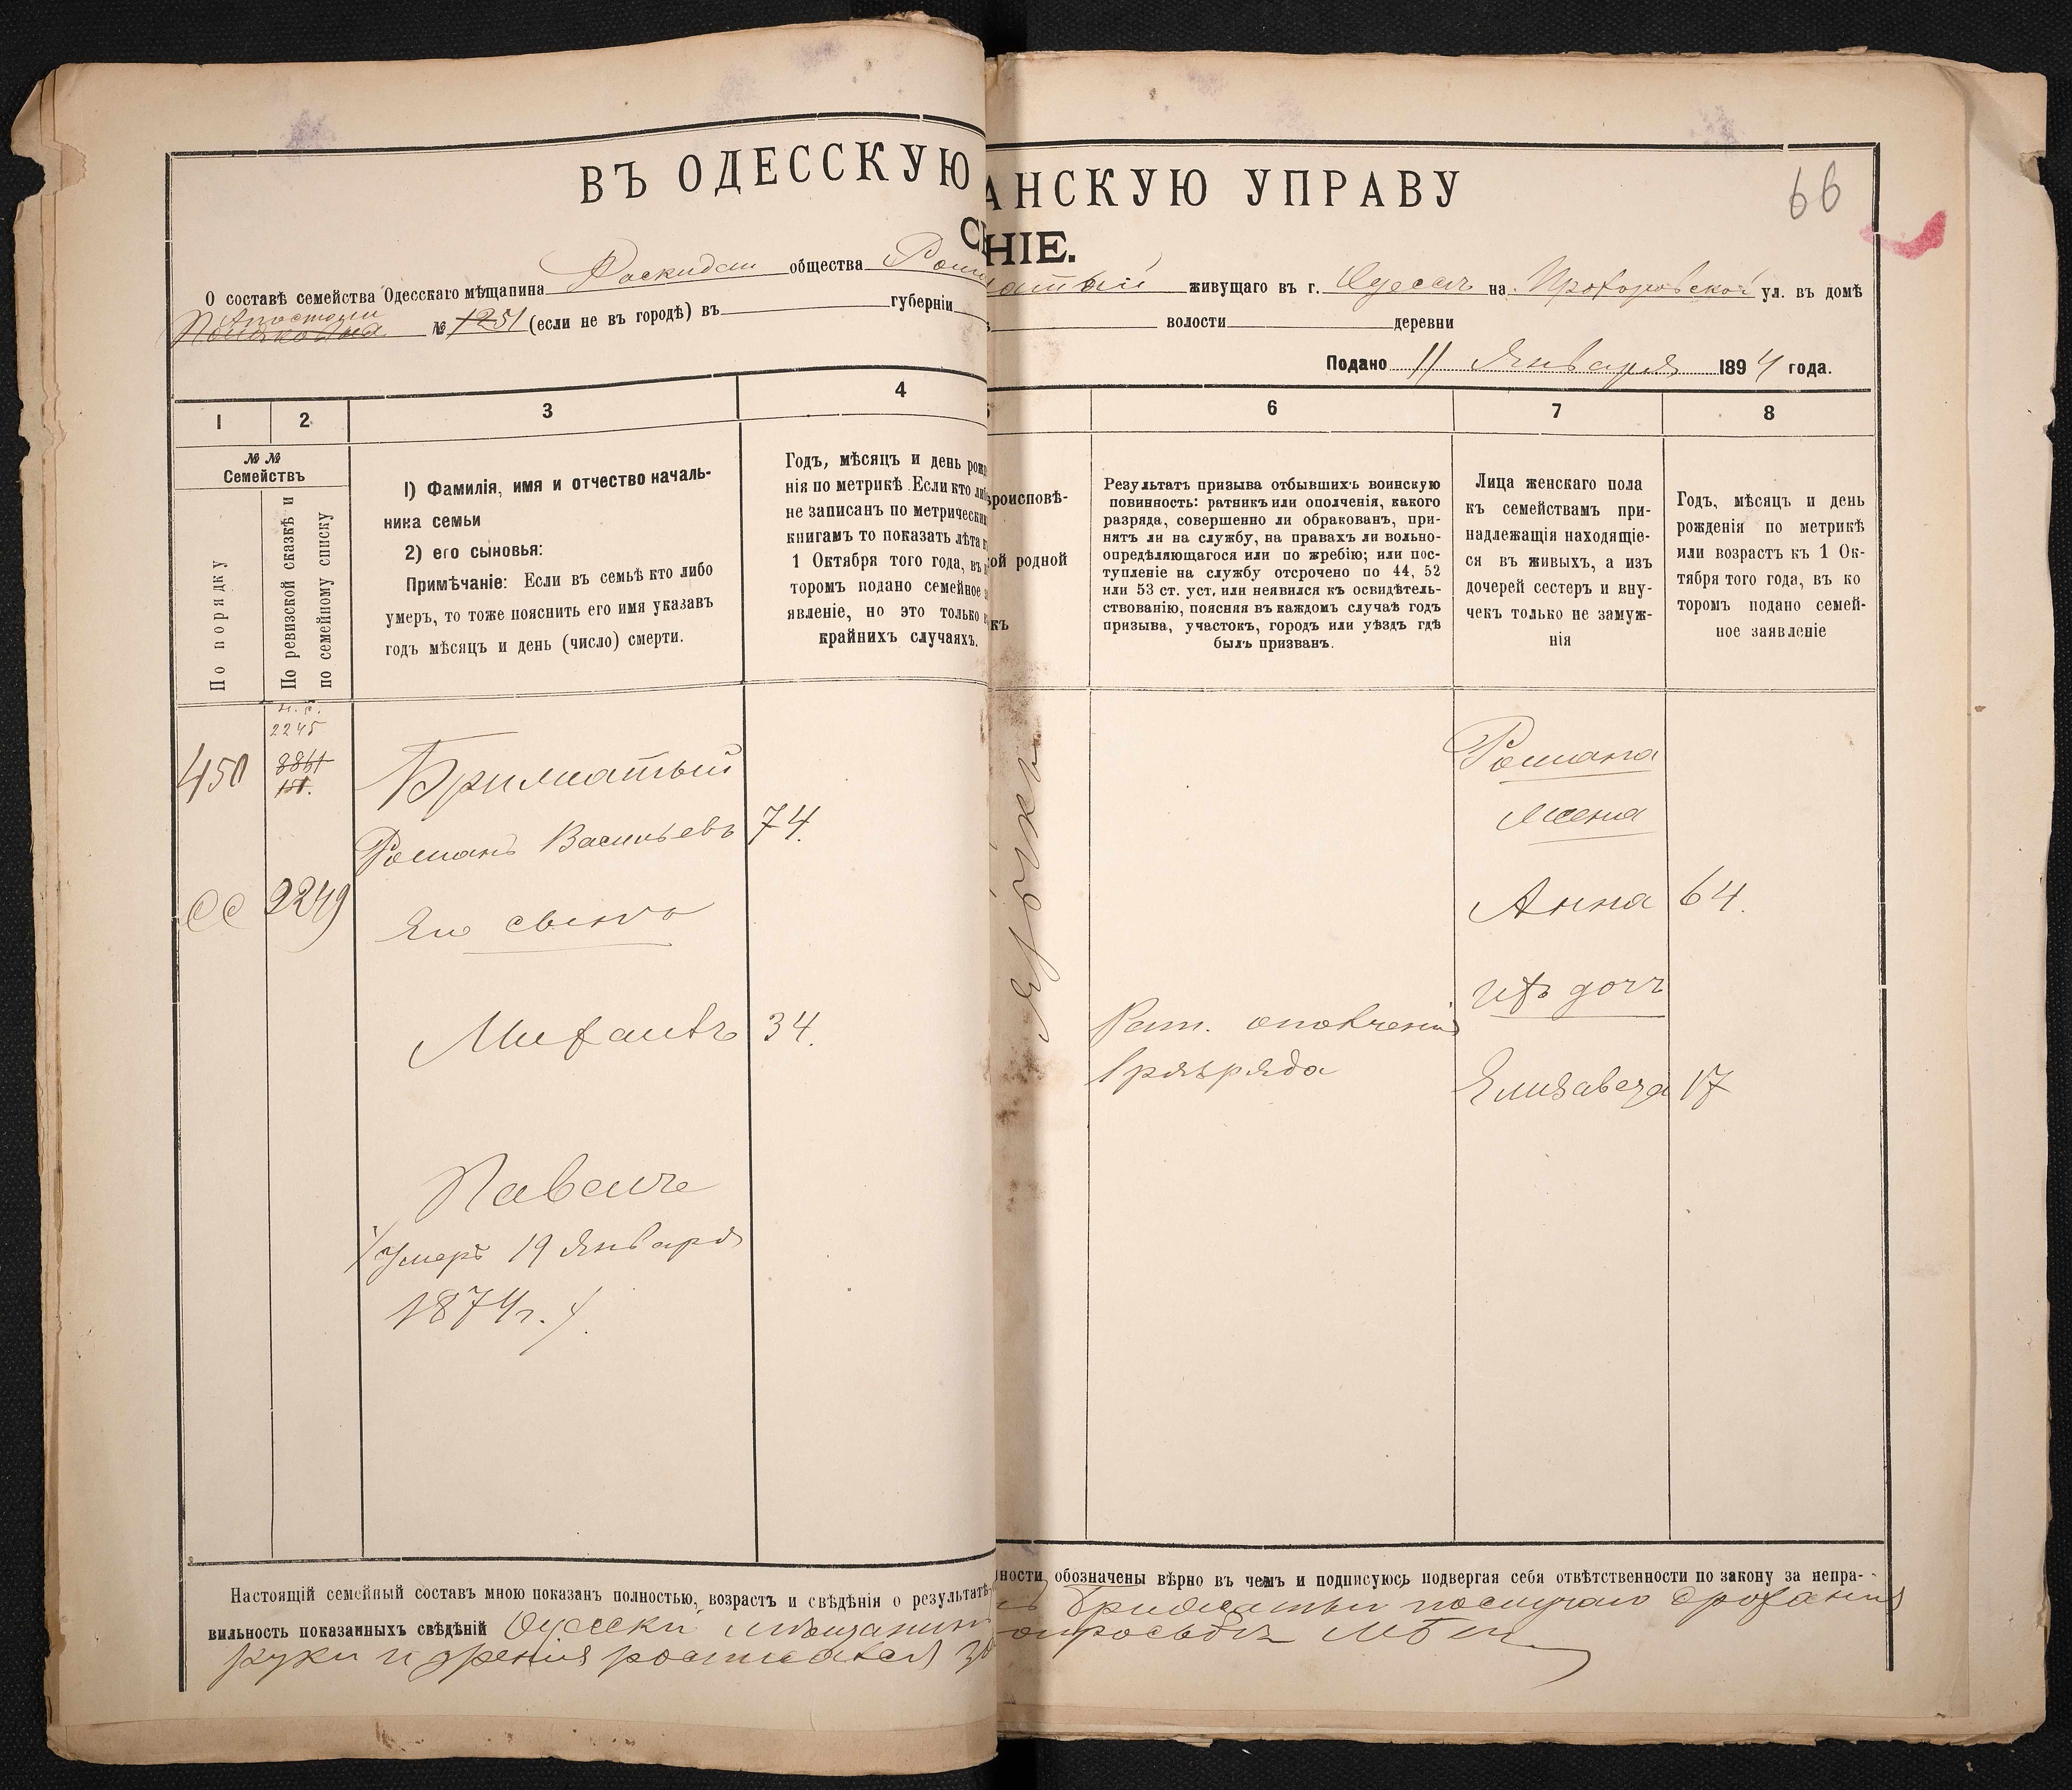 66
ВЪ ОДЕССКУЮ АНСКУЮ УПРАВУ
НІЕ.
О составѣ семейства Одесскаго мѣщанина общества живущаго въ г. Одессѣ на Прохоровской ул. въ домѣ
№ 1251 (если не въ городѣ) въ губерніи волости деревни
Подано 11 Января 1894 года.
1 2 3 4 6 7 8
№№
Семействъ
По порядку
По ревизской сказкѣ и
по семейному списку
1) Фамилія, имя и отчество началь-
ника семьи
2) его сыновья:
Примѣчаніе: Если въ семьѣ кто либо
умеръ, то тоже пояснить его имя указавъ
годъ мѣсяцъ и день (число) смерти.
Годъ, мѣсяцъ и день рож
нія по метрикѣ. Если кто ли
не записанъ по метрически
книгамъ то показать лѣта к
1 Октября того года, въ к
торомъ подано семейное з
явленіе, но это только в
крайнихъ случаяхъ.
роисповѣ-
ой родной
къ
Результатъ призыва отбывшихъ воинскую
повинность: ратникъ или ополченія, какого
разряда, совершенно ли обракованъ, при-
нятъ ли на службу, на правахъ ли вольно-
опредѣляющагося или по жребію; или пос-
тупленіе на службу отсрочено по 44, 52
или 53 ст. уст. или неявился къ освидѣтель-
ствованію, поясняя въ каждомъ случаѣ годъ
призыва, участокъ, городъ или уѣздъ гдѣ
былъ призванъ.
Лица женскаго пола
къ семействамъ при-
надлежащія находящіе-
ся въ живыхъ, а изъ
дочерей сестеръ и вну-
чекъ только не замуж-
нія
Годъ, мѣсяцъ и день
рожденія по метрикѣ
или возрастъ къ 1 Ок-
тября того года, въ ко
торомъ подано семей-
ное заявленіе
2245
450
Бриматый
Романъ Васильевъ 74.
2249
Его сынъ
Михаилъ 34.
Рат. ополченія
1 разряда
Павелъ
/Умеръ 19 Января
1874 г./.
Романа
жена
Анна 64.
ихъ дочь
Елизавета 17
Настоящій семейный составъ мною показанъ полностью, возрастъ и свѣдѣнія о результатѣ
ности обозначены вѣрно въ чемъ и подписуюсь подвергая себя отвѣтственности по закону за непра-
вильность показанныхъ свѣдѣній Одесскій мѣщанинъ по случаю дрожанія
руки и зрѣнія росписался просьбѣ